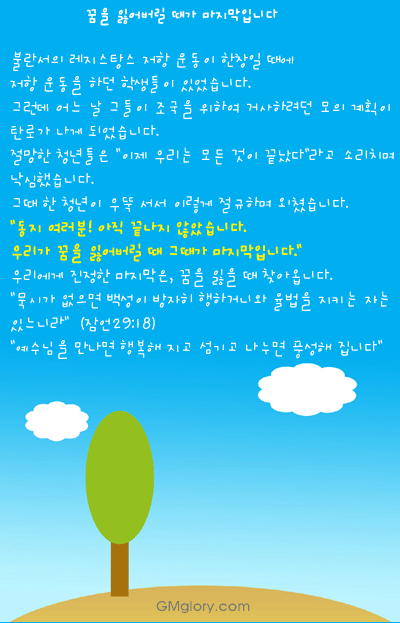 꿈을 잃어버릴 때가 마지막입니다
불란서의 레지스탕스 저항 운동이 한창일 때에
저항 운동을 하던 학생들이 있었습니다.
그런데 어느 날 그들이 조국을 위하여 거사하려던 모의 계획이
탄로가 나게 되었습니다.
절망한 청년들은 "이제 우리는 모든 것이 끝났다"라고 소리치며
낙심했습니다.
그때 한 청년이 우뚝 서서 이렇게 절규하며 외쳤습니다.
"동지 여러분! 아직 끝나지 않았습니다.
우리가 꿈을 잃어버릴 때 그때가 마지막입니다."
우리에게 진정한 마지막은, 꿈을 잃을 때 찾아옵니다.
"묵시가 없으면 백성이 방자히 행하거니와 율법을 지키는 자는
있느니라" (잠언29:18)
"예수님을 만나면 행복해 지고 섬기고 나누면 풍성해 집니다"
GMglory.com